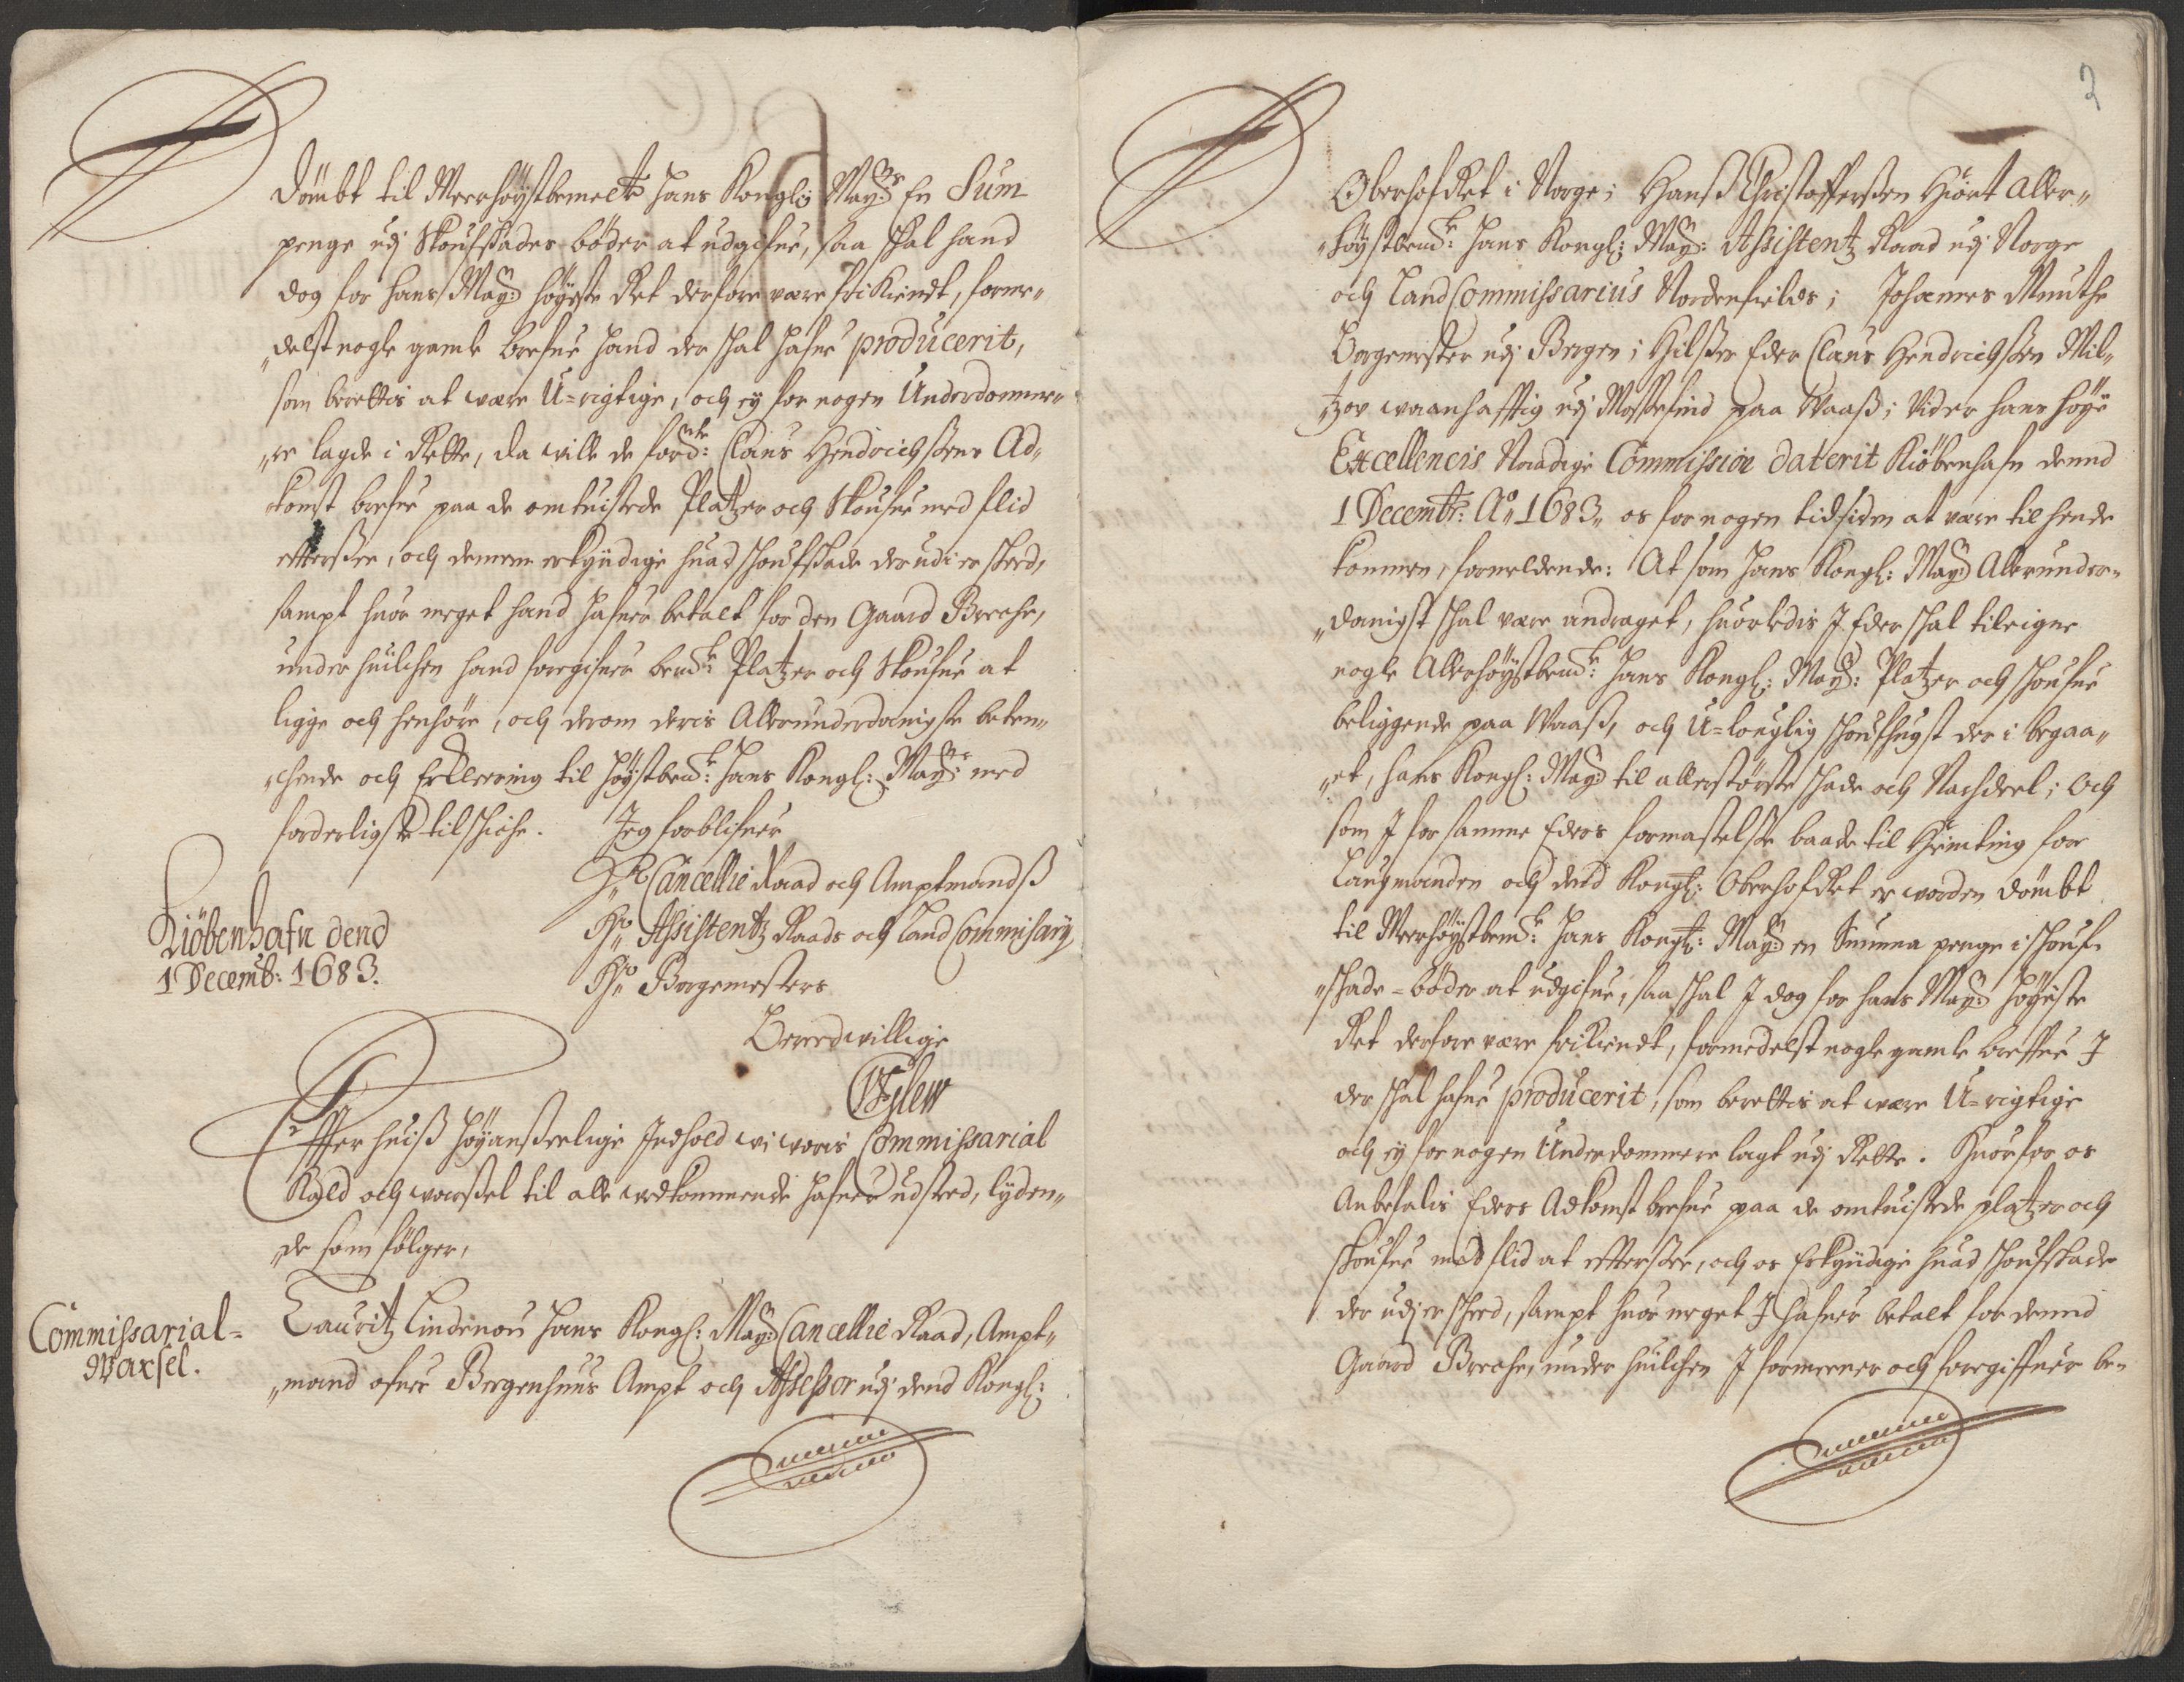 dömbt til Meerhöystbemelte Hans Kongl: Mayts En Sum
penge udj Skoufskades böder at udgifue, saa skal hand
dog for hans Mayts höyeste Ret derfore være frikiendt, forme„
„delst nogle gamle brefue hand der skal hafue producerit,
som berettis at være U=rigtige, och ey for nogen Underdommer„
„re lagde i Rette, da wille de fornde: Claus Hendrichßens Ad„
komst brefue paa de omtuistede Platzer och Skoufue med flid
effterßee, och dennem erkyndige huad Skoufskade derudi er skeed,
sampt huor meget hand hafuer betalt for den Gaard Breche,
under huilchen hand foregifuer bemte: Platzer och Skoufue at
ligge och henhöre, och derom deris Allerunderdanigste beten„
„chende och Erklering til höystbemte: Hans Kongl: Mayt: med
forderligste tilschiche. Jeg forblifuer
Hr Cancellie Raad och Amptmandß
Hr Assistentz Raads och Land Commissarij
Hr Borgemesters
Kiöbenhafn dend
1 Decemb: 1683.
Beredwillige
Effter huiß höyanßeelige Jndhold wi woris Commissarial
Kald och warßel til alle vedkommende hafuer udsted, lyden„
„de som fölger,
Commissarial=
Warsel.
Lauritz Lindenou Hans Kongl: Mayts Cancellie Raad, Ampt„
„mand ofuer Bergenhuus Ampt och Assessor udj dend Kongl:
2
Oberhofret i Norge; Hanß Christofferßen Hiört Aller„
„höystbemte: Hans Kongl: Mayts: Assistentz Raad udj Norge
och Land Commissarius Nordenfields; Johannes Munthe
Borgemester udj Bergen; Hilßer Eder Claus Hendrichßen Mil„
tzov waanhafftig udj Mossefind paa Waaß; Vider hans höye
Excellencis Naadige Commission daterit Kiöbenhafn dennd
1 Decembr: Ao 1683„ os for nogen tid siden at være til hende
kommen, formeldende: At som Hans Kongl: Mayt Allerunder„
„danigst skal være andraget, huorledis J Eder skal tileigne
nogle Allerhöystbemte: Hans Kongl: Mayts: Platzer och skoufue
beliggende paa Waaß, och U=louglig skoufhugst der i begaa„
„et, hans Kongl: Mayt til allerstörste skade och Nachdeel; Och
som J for samme Eders formastelße baade til Heimting for
Laugmanden och dend Kongl: Oberhofret er worden dömbt
til Meerhöystbemte: Hans Kongl: Mayt en Summa penge i skouf„
„skade=böder at udgifue, saa skal J dog for hans Mayts höyeste
Ret derfore være frikiendt, formedelst nogle gamle breffue J
der skal hafue producerit, som berettis at være U=rigtige
och ey for nogen Underdommere lagt udj Rette. Huorfor os
Anbefalis Eders Adkomst brefue paa de omtuistede platzer och
skoufue med flid at effterßee, och os Erkyndige huad skoufskade
der udj er skeed, sampt huor meget J hafuer betalt for dennd
Gaard Breche, under huilchen J formeener och foregiffuer be„